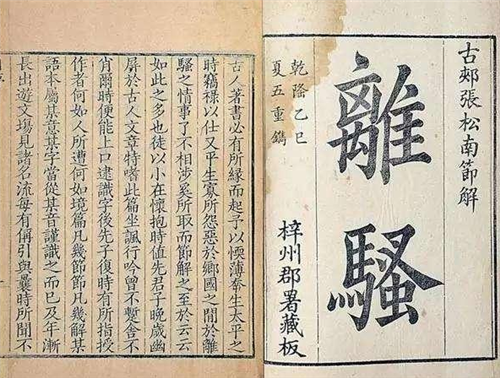 古郟張松南節解
離騷
乾隆乙巳
夏五重鐫
梓州郡署藏板
古人著書必有所緣而起予以愞薄幸生太平之
時竊祿以仕又平生寡所怨惡於鄉國之間於離
騷之情事了不相涉奚所取而節解之至於云云
如此之多也徒以小在懷抱時值先君子晚歲幽
屏於古人文章特嗜此篇坐諷行吟曾不蹔舍不
肖爾時便能上口逮識字後先子復時有所指授
作者何如人所遭何如境篇凡幾節節凡幾解某
語本屬某意某字當從某音謹識之而已及年漸
長出遊文場見諸名流每有稱引與曩時所聞不